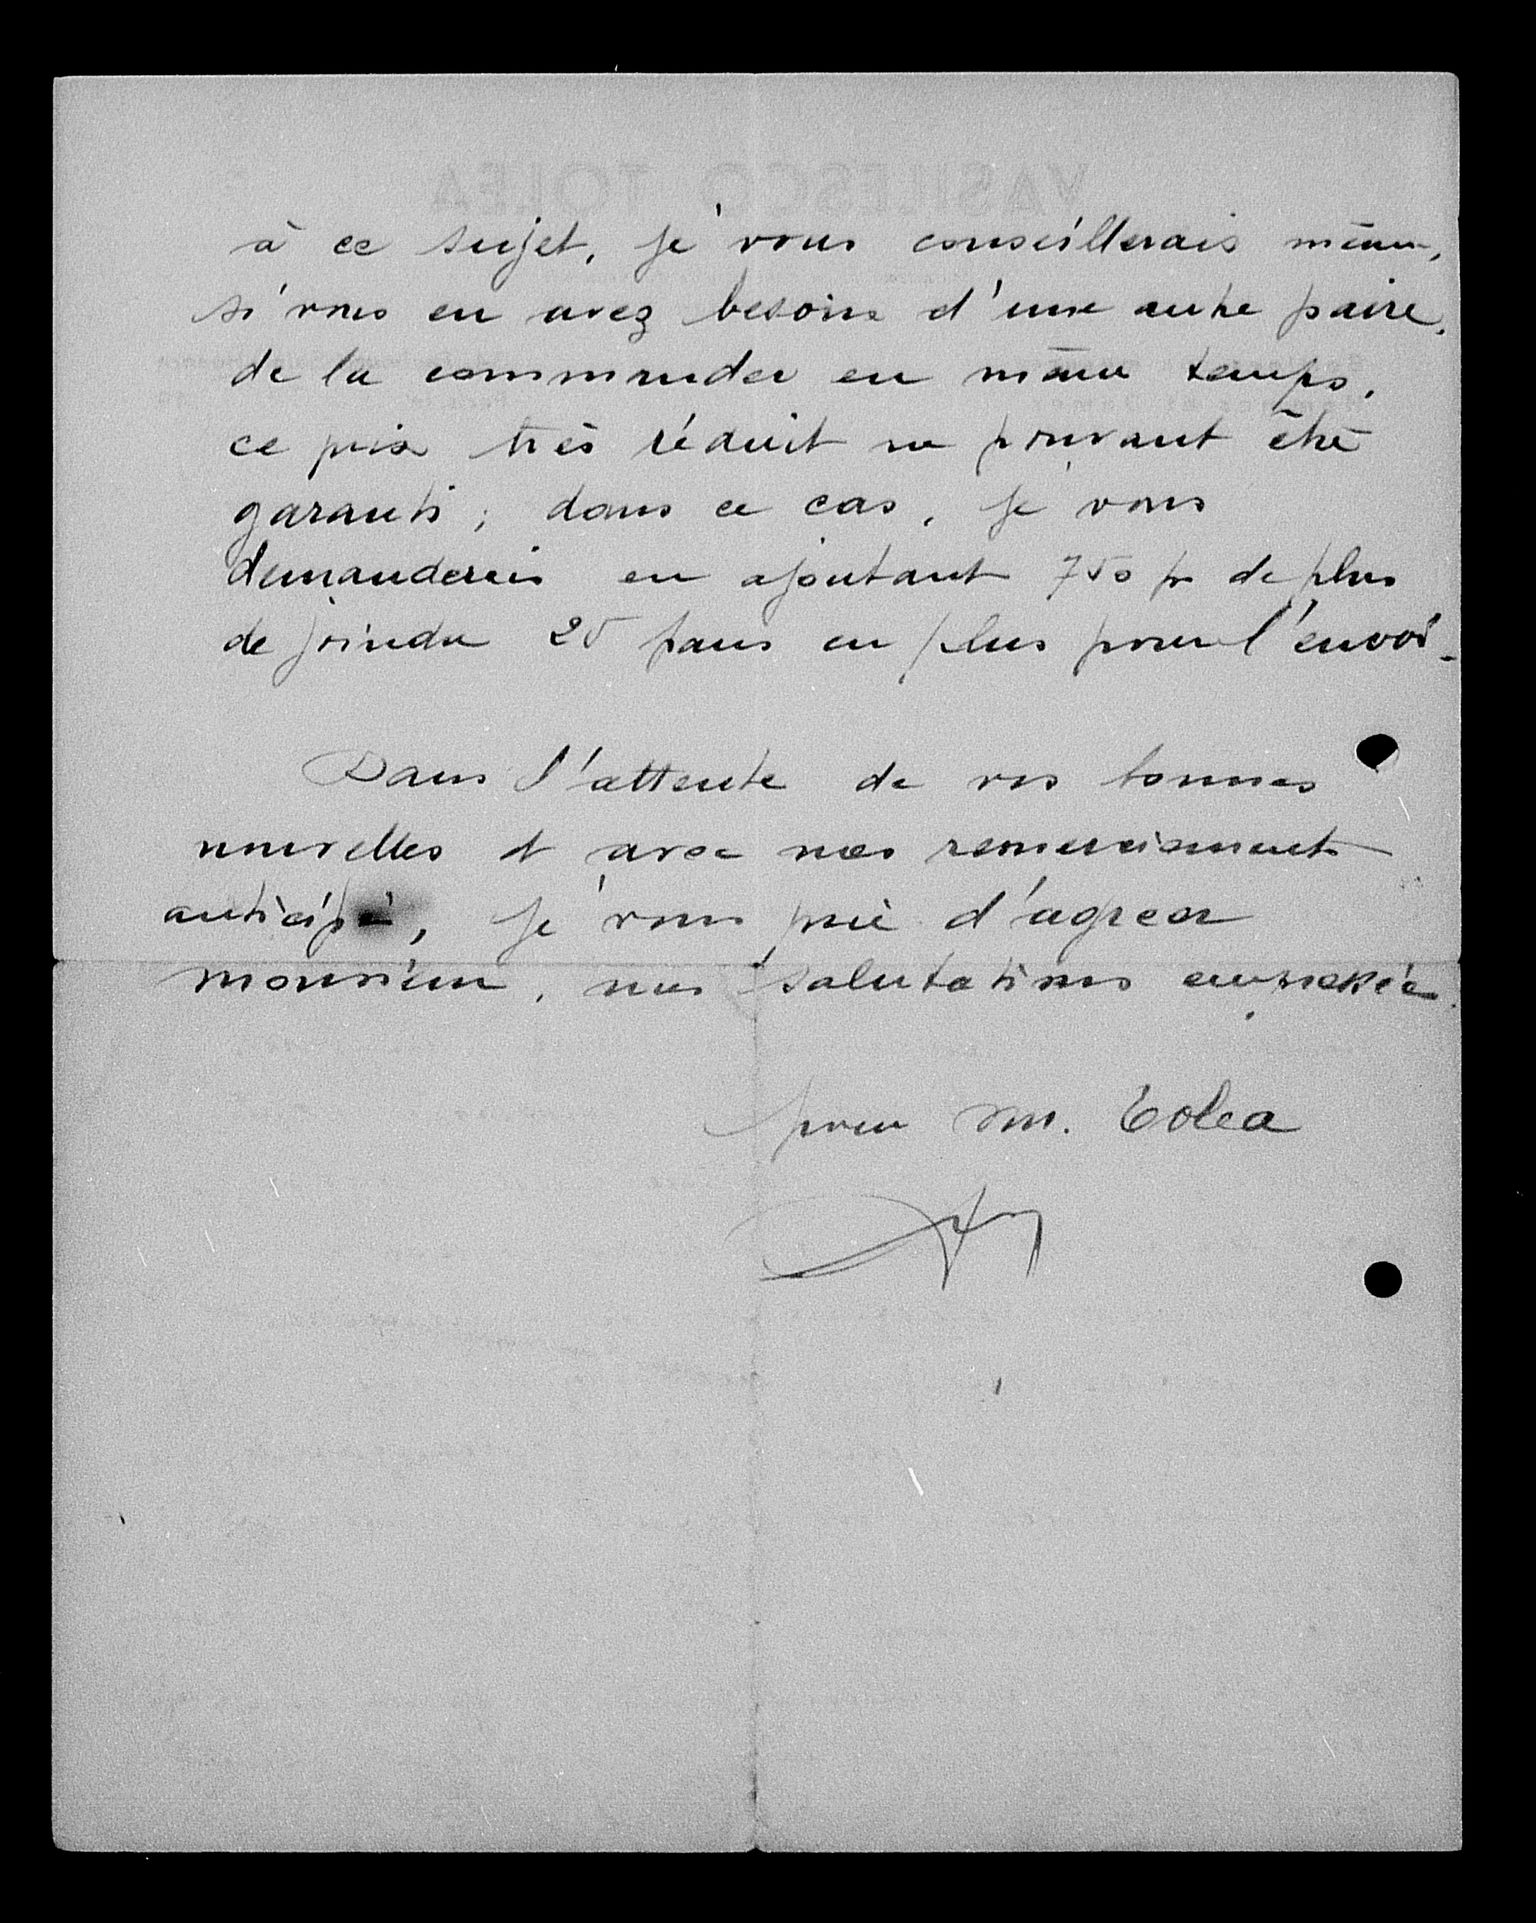 à ce sujet, je vous conseillerais même,
si vous en avez besoin d'une autre paire,
de la commander en même temps,
ce prix très réduit ne pouvant être
garanti ; dans ce cas, je vous
demanderais en ajoutant 750 fr de plus
de joindre 25 francs en plus pour l'envoi.
Dans l'attente de vos bonnes
nouvelles et avec nos remerciements
anticipé, je vous prie d'agréer
monsieur, nos salutations empressées.
pour M. Tolea